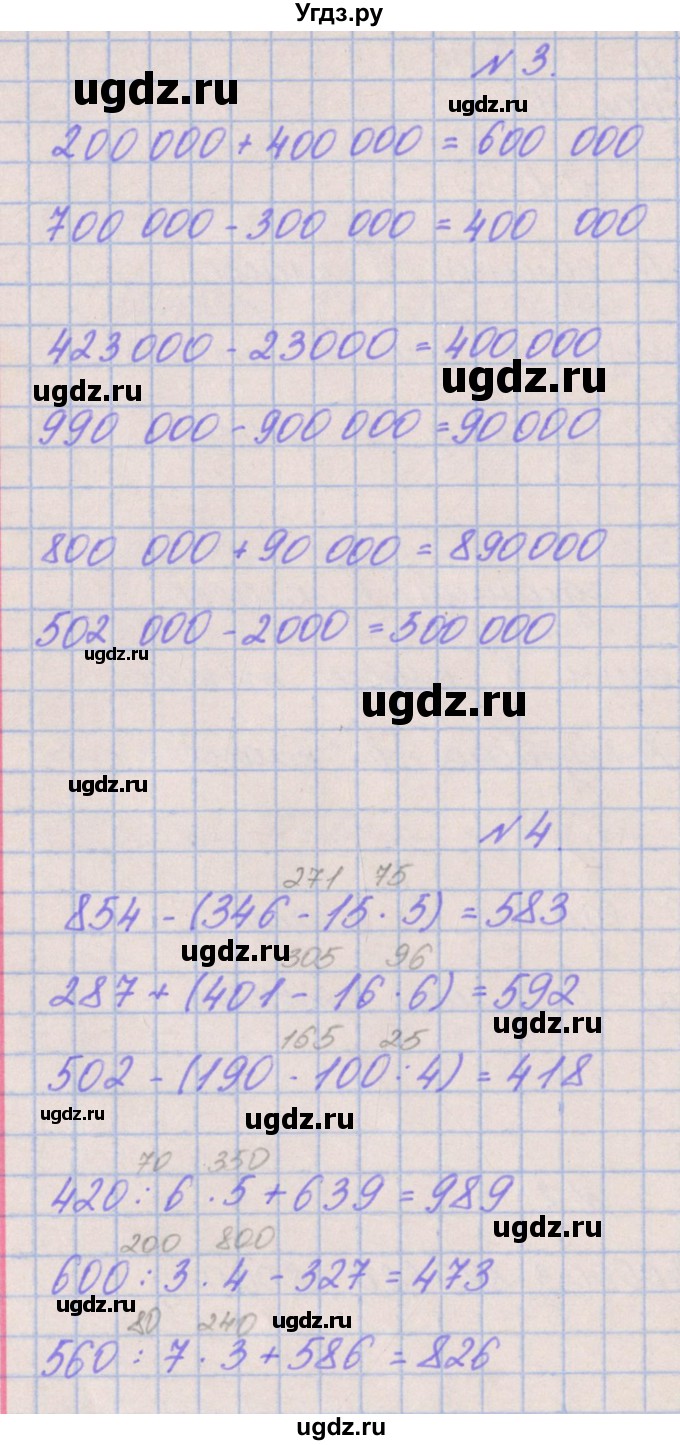 Угдз.ру
N 3.
ugdz.ru
ugdz.ru
200 000 + 400 000 = 600 000
700 000 - 300 000 = 400 000
423000 - 23000 = 400 000
ugdz.ru
ugdz.ru
990 000 - 900 000 = 90 000
800 000 + 90 000 = 890000
502 000 - 2000 = 500 000
ugdz.ru
ugdz.ru
ugdz.ru
N 4.
271 75
854 - (346 - 15 · 5) = 583
ugdz.ru
305 96
287 + (401 - 16 · 6) = 592
ugdz.ru
165 25
502 - (190 - 100 : 4) = 418
ugdz.ru
ugdz.ru
70 350
420 : 6 · 5 + 639 = 989
ugdz.ru
200 800
600 : 3 · 4 - 327 = 473
ugdz.ru
ugdz.ru
80 240
560 : 7 · 3 + 586 = 826
ugdz.ru